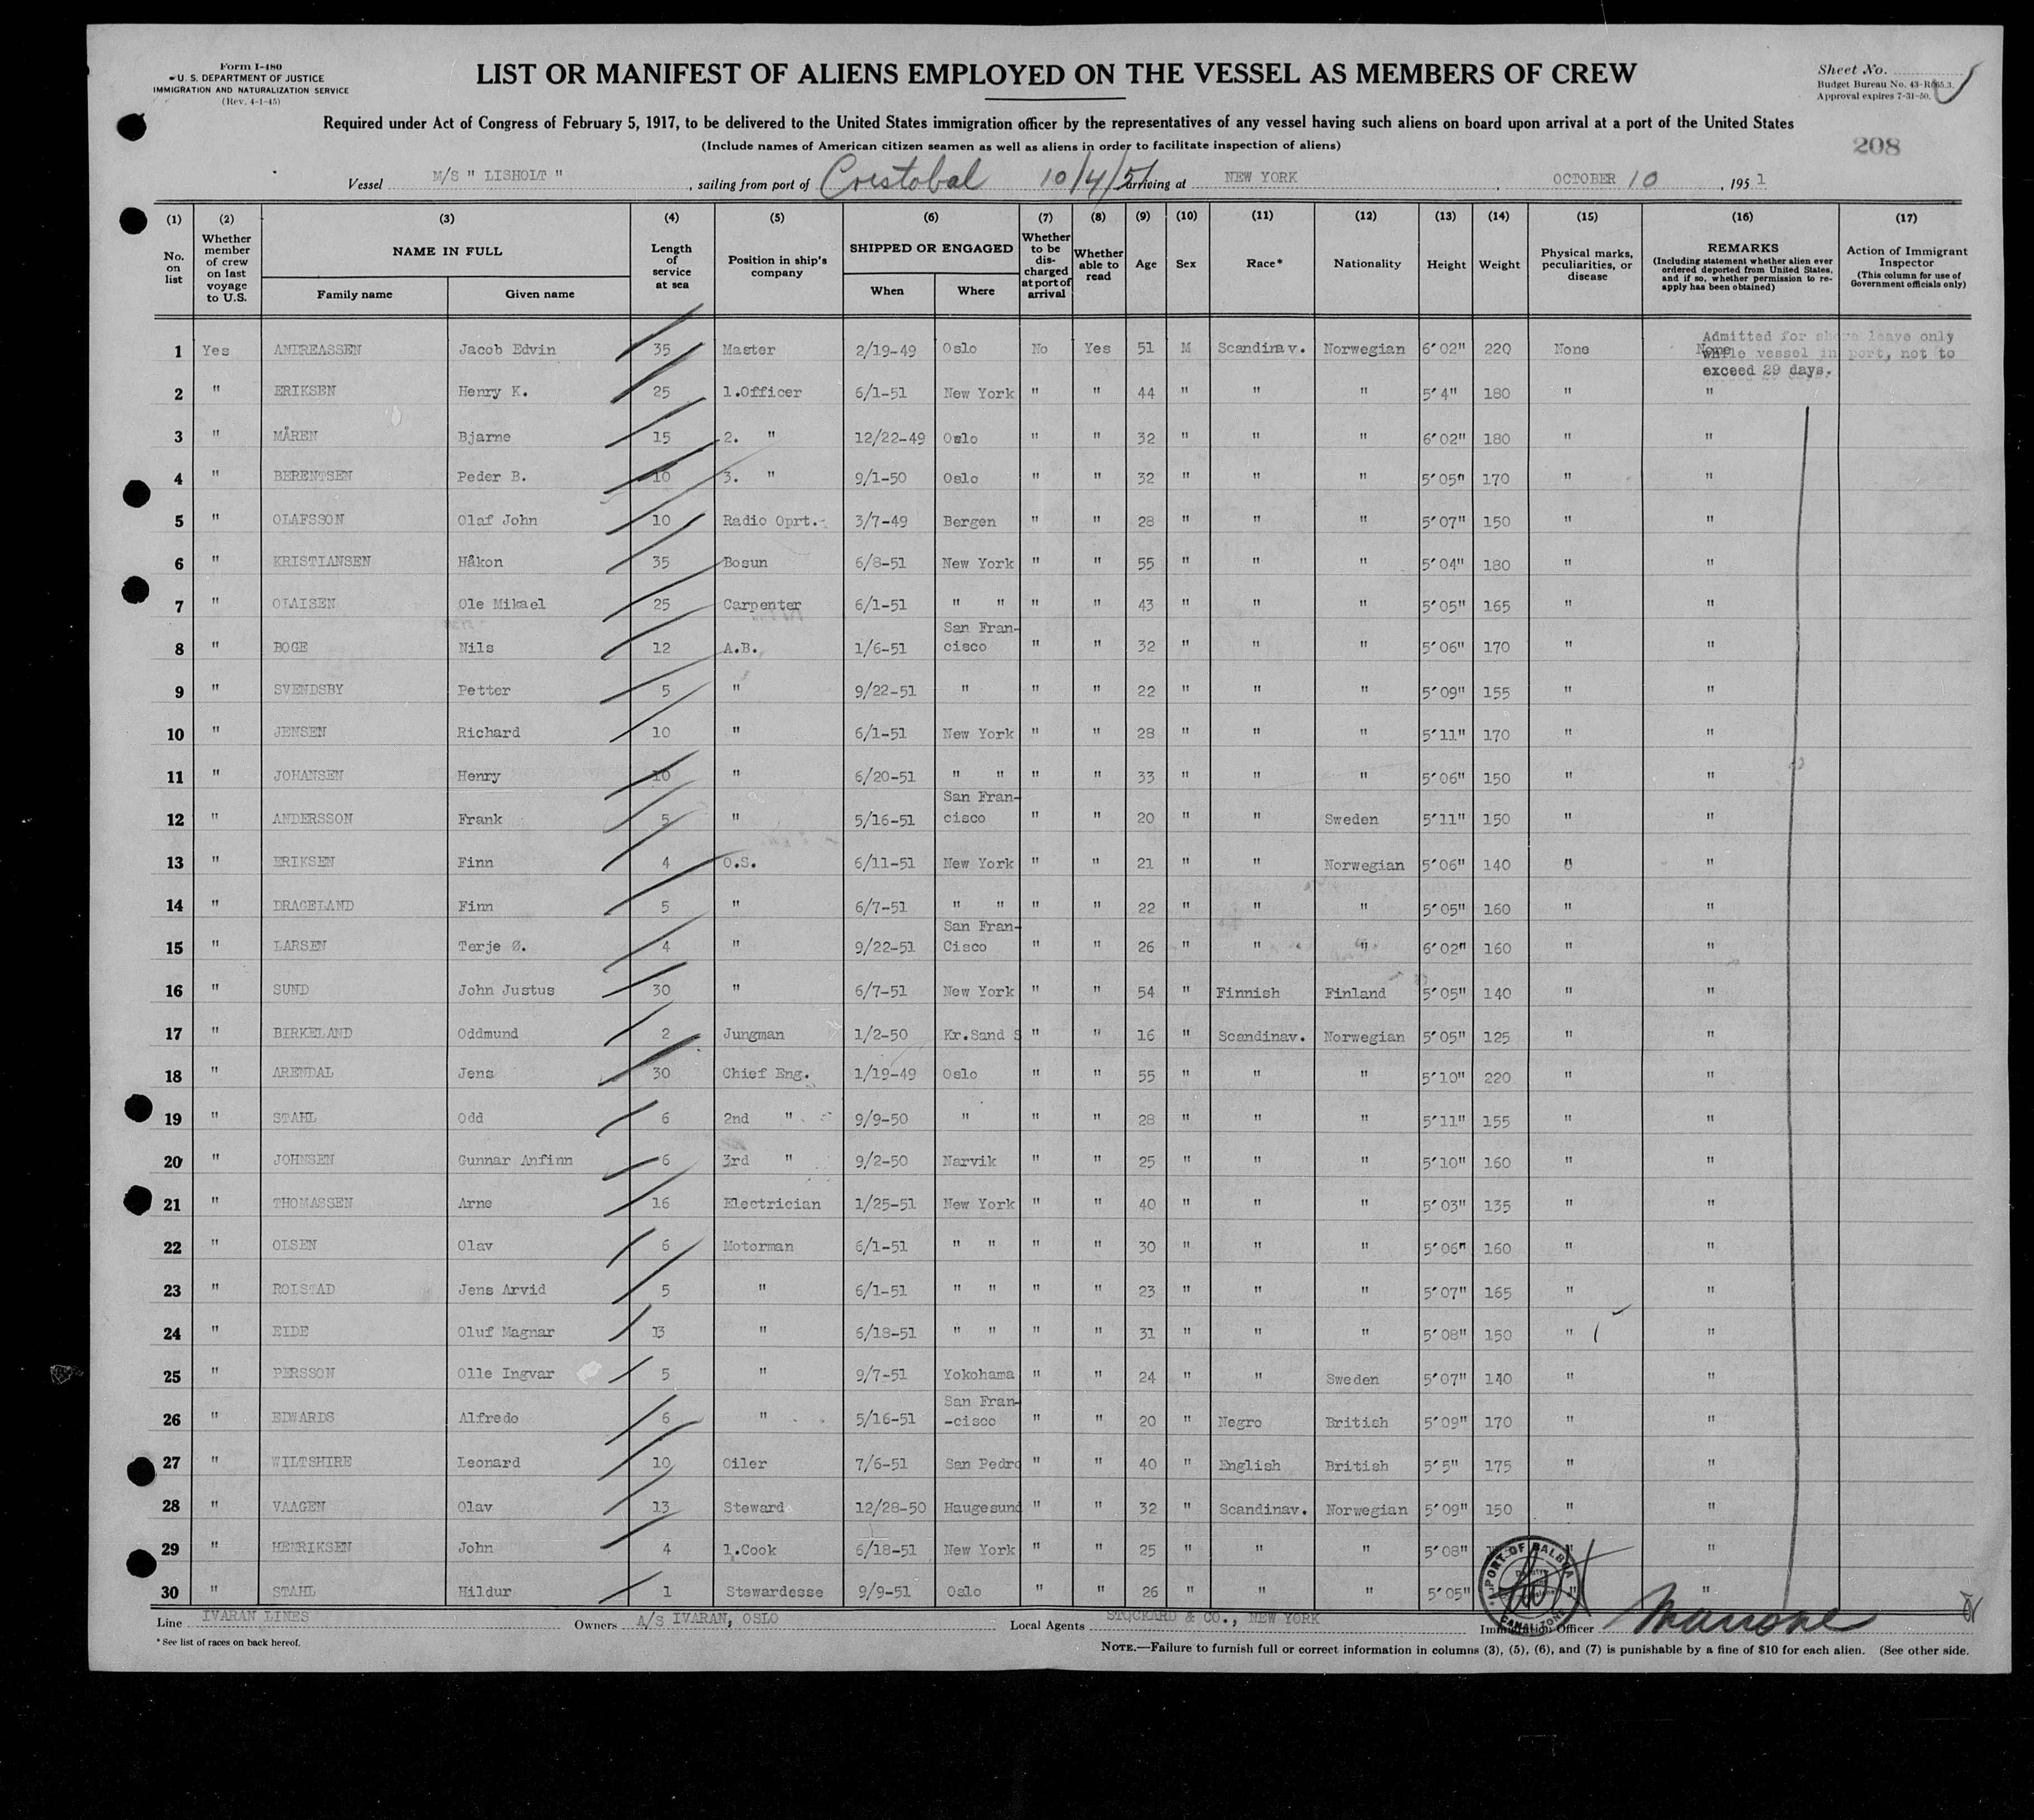 Form I-480
U. S. DEPARTMENT OF JUSTICE
IMMIGRATION AND NATURALIZATION SERVICE
(Rev. 4-1-45)
LIST OR MANIFEST OF ALIENS EMPLOYED ON THE VESSEL AS MEMBERS OF CREW
Sheet No.
Budget Bureau No. 43-R065.3.
Approval expires 7-31-50.
Required under Act of Congress of February 5, 1917, to be delivered to the United States immigration officer by the representatives of any vessel having such aliens on board upon arrival at a port of the United States
(Include names of American citizen seamen as well as aliens in order to facilitate inspection of aliens)
208
Vessel M/S " LISHOLT " , sailing from port of Cristobal 10/4/51 arriving at NEW YORK , OCTOBER 10 , 1951
(1) (2) (3) (4) (5) (6) (7) (8) (9) (10) (11) (12) (13) (14) (15) (16) (17)
No. on list
Whether member of crew on last voyage to U.S.
NAME IN FULL
Family name
Given name
Length of service at sea
Position in ship's company
SHIPPED OR ENGAGED
When
Where
Whether to be discharged at port of arrival
Whether able to read
Age
Sex
Race*
Nationality
Height
Weight
Physical marks, peculiarities, or disease
REMARKS
(Including statement whether alien ever ordered deported from United States, and if so, whether permission to re-apply has been obtained)
Action of Immigrant Inspector
(This column for use of Government officials only)
Admitted for shore leave only
while vessel in port, not to
exceed 29 days.
1 Yes ANDREASSEN Jacob Edvin 35 Master 2/19-49 Oslo No Yes 51 M Scandinav. Norwegian 6'02" 220 None None
2 " ERIKSEN Henry K. 25 1.Officer 6/1-51 New York " " 44 " " " 5'4" 180 " "
3 " MÅREN Bjarne 15 2. " 12/22-49 Oslo " " 32 " " " 6'02" 180 " "
4 " BERENTSEN Peder B. 10 3. " 9/1-50 Oslo " " 32 " " " 5'05" 170 " "
5 " OLAFSSON Olaf John 10 Radio Oprt. 3/7-49 Bergen " " 28 " " " 5'07" 150 " "
6 " KRISTIANSEN Håkon 35 Bosun 6/8-51 New York " " 55 " " " 5'04" 180 " "
7 " OLAISEN Ole Mikael 25 Carpenter 6/1-51 " " " " 43 " " " 5'05" 165 " "
8 " BOGE Nils 12 A.B. 1/6-51 San Fran-cisco " " 32 " " " 5'06" 170 " "
9 " SVENDSBY Petter 5 " 9/22-51 " " " 22 " " " 5'09" 155 " "
10 " JENSEN Richard 10 " 6/1-51 New York " " 28 " " " 5'11" 170 " "
11 " JOHANSEN Henry 10 " 6/20-51 " " " " 33 " " " 5'06" 150 " "
12 " ANDERSSON Frank 5 " 5/16-51 San Fran-cisco " " 20 " " Sweden 5'11" 150 " "
13 " ERIKSEN Finn 4 O.S. 6/11-51 New York " " 21 " " Norwegian 5'06" 140 " "
14 " DRAGELAND Finn 5 " 6/7-51 " " " " 22 " " " 5'05" 160 " "
15 " LARSEN Terje Ø. 4 " 9/22-51 San Fran-Cisco " " 26 " " " 6'02" 160 " "
16 " SUND John Justus 30 " 6/7-51 New York " " 54 " Finnish Finland 5'05" 140 " "
17 " BIRKELAND Oddmund 2 Jungman 1/2-50 Kr.Sand S " " 16 " Scandinav. Norwegian 5'05" 125 " "
18 " ARENDAL Jens 30 Chief Eng. 1/19-49 Oslo " " 55 " " " 5'10" 220 " "
19 " STAHL Odd 6 2nd " 9/9-50 " " " 28 " " " 5'11" 155 " "
20 " JOHNSEN Gunnar Anfinn 6 3rd " 9/2-50 Narvik " " 25 " " " 5'10" 160 " "
21 " THOMASSEN Arne 16 Electrician 1/25-51 New York " " 40 " " " 5'03" 135 " "
22 " OLSEN Olav 6 Motorman 6/1-51 " " " " 30 " " " 5'06" 160 " "
23 " ROLSTAD Jens Arvid 5 " 6/1-51 " " " " 23 " " " 5'07" 165 " "
24 " EIDE Oluf Magnar 13 " 6/18-51 " " " " 31 " " " 5'08" 150 " "
25 " PERSSON Olle Ingvar 5 " 9/7-51 Yokohama " " 24 " " Sweden 5'07" 140 " "
26 " EDWARDS Alfredo 6 " 5/16-51 San Fran--cisco " " 20 " Negro British 5'09" 170 " "
27 " WILTSHIRE Leonard 10 Oiler 7/6-51 San Pedro " " 40 " English British 5'5" 175 " "
28 " VAAGEN Olav 13 Steward 12/28-50 Haugesund " " 32 " Scandinav. Norwegian 5'09" 150 " "
29 " HENRIKSEN John 4 1.Cook 6/18-51 New York " " 25 " " " 5'08" " "
30 " STAHL Hildur 1 Stewardesse 9/9-51 Oslo " " 26 " " " 5'05" " "
PORT OF BALBOA
CANAL ZONE
Line IVARAN LINES Owners A/S IVARAN, OSLO Local Agents STOCKARD & CO., NEW YORK Immigration Officer
* See list of races on back hereof.
NOTE.—Failure to furnish full or correct information in columns (3), (5), (6), and (7) is punishable by a fine of $10 for each alien. (See other side.